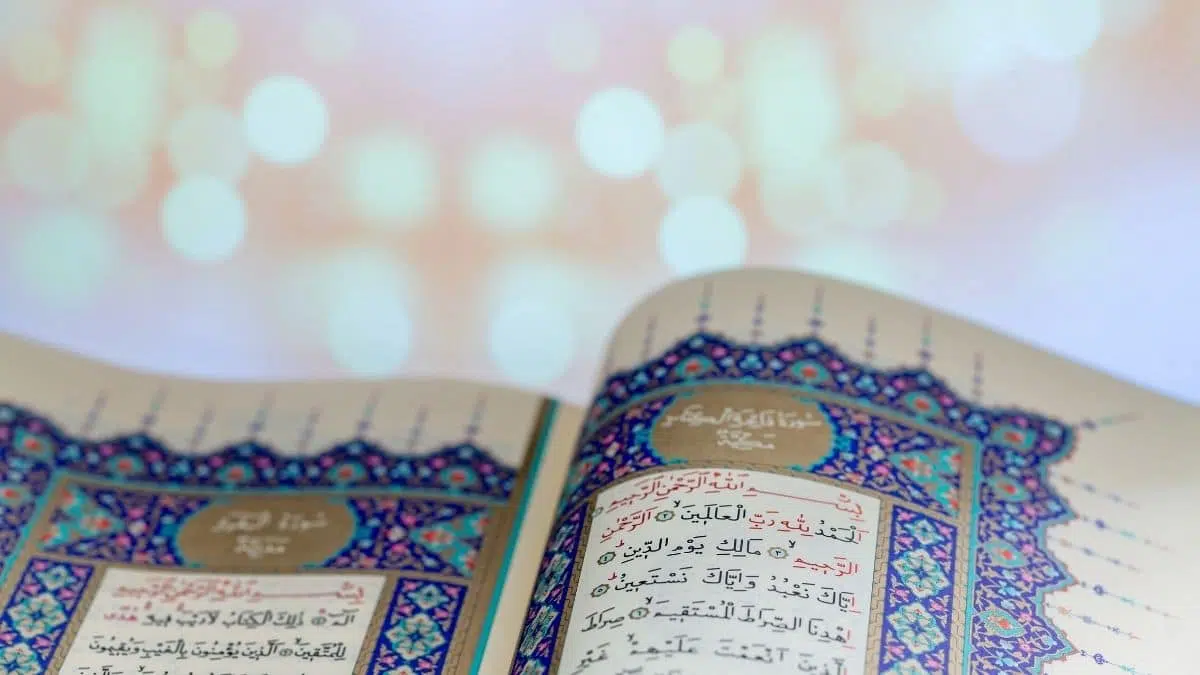 سُورَةُ فَاتِحَةِ الْكِتَابِ
مَكِّيَّةٌ
بِسْمِ اللّٰهِ الرَّحْمٰنِ الرَّحِيمِ
اَلْحَمْدُ لِلّٰهِ رَبِّ الْعَالَمٖينَۙ ﴿١﴾ اَلرَّحْمٰنِ
الرَّحٖيمِۙ ﴿٢﴾ مَالِكِ يَوْمِ الدّٖينِؕ ﴿٣﴾
اِيَّاكَ نَعْبُدُ وَاِيَّاكَ نَسْتَعٖينُؕ ﴿٤﴾
اِهْدِنَا الصِّرَاطَ الْمُسْتَقٖيمَۙ ﴿٥﴾ صِرَاطَ
الَّذٖينَ اَنْعَمْتَ عَلَيْهِمْۙ غَيْرِ
سُورَةُ الْبَقَرَةِ
مَدَنِيَّةٌ
بِسْمِ اللّٰهِ الرَّحْمٰنِ الرَّحِيمِ
الٓمٓ ﴿١﴾ ذٰلِكَ الْكِتَابُ لَا رَيْبَ فٖيهِ هُدًى
لِلْمُتَّقٖينَۙ ﴿٢﴾ اَلَّذٖينَ يُؤْمِنُونَ بِالْغَيْبِ وَيُقٖيمُونَ